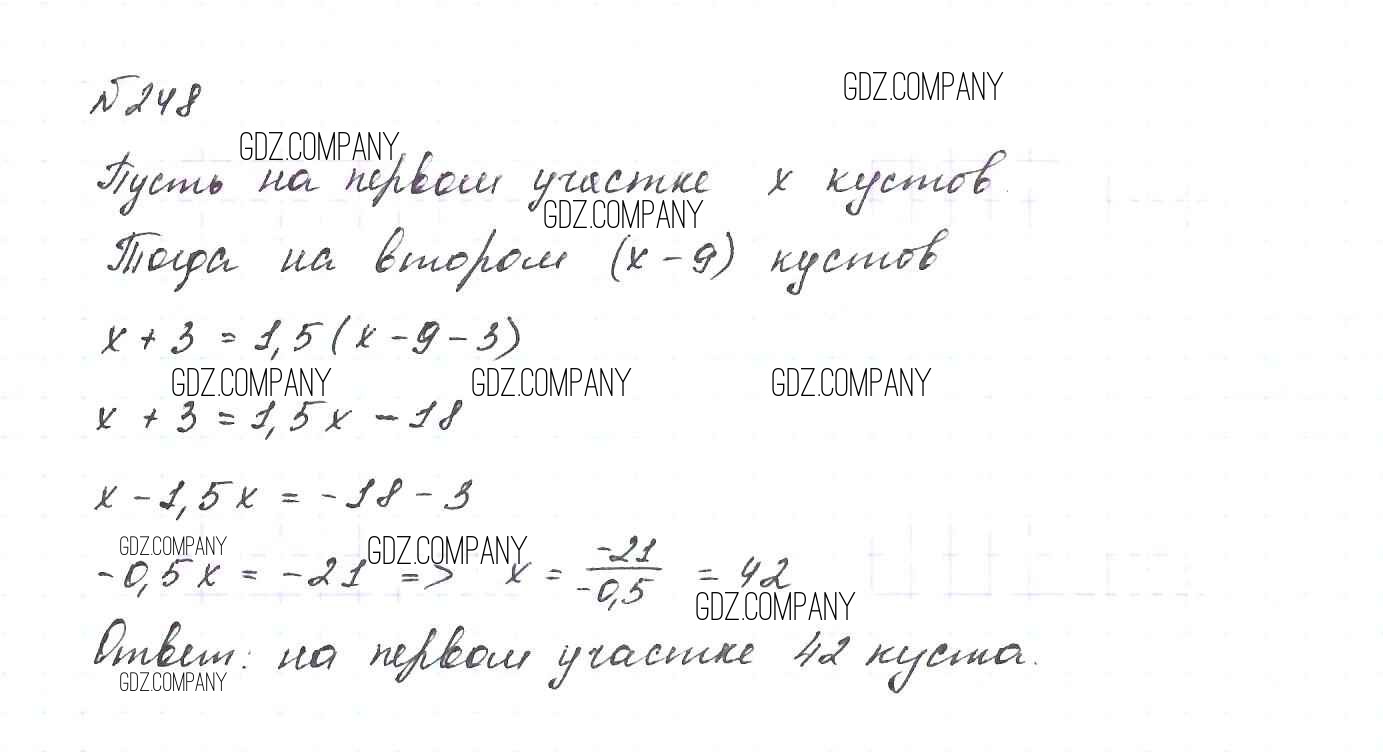 №248
GDZ.COMPANY
GDZ.COMPANY
Пусть на первом участке x кустов.
GDZ.COMPANY
Тогда на втором (x - 9) кустов
x + 3 = 1,5(x - 9 - 3)
GDZ.COMPANY GDZ.COMPANY GDZ.COMPANY
x + 3 = 1,5x - 18
x - 1,5x = -18 - 3
GDZ.COMPANY GDZ.COMPANY
-0,5x = -21 => x = -21/-0,5 = 42
GDZ.COMPANY
Ответ: на первом участке 42 куста.
GDZ.COMPANY